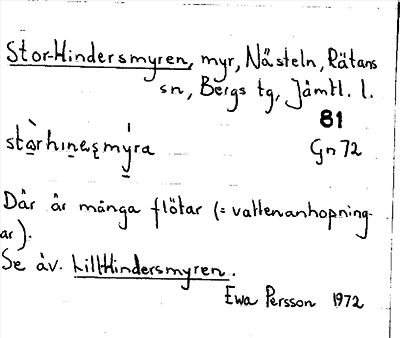 Stor-Hindersmyren, myr, Nästeln, Rätans
sn, Bergs tg, Jämtl. l.
81
Gn 72
Där är många flötar (= vattenanhopning-
ar).
Se äv. LillHindersmyren.
Ewa Persson 1972